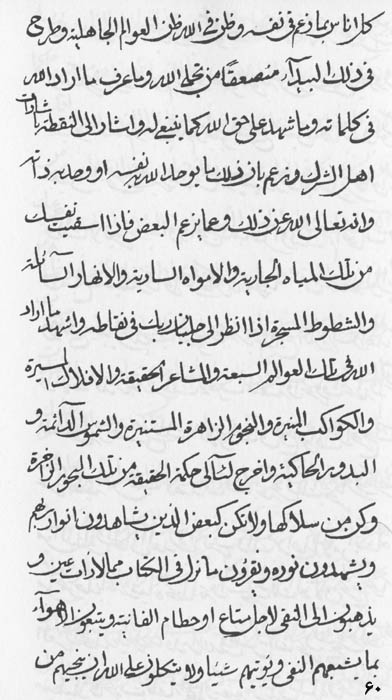 كل اناس بما زعم في نفسه وظن في الله ظن العوالم الجاهلية وطرح
في ذلك البيدآء منصعقا من تجلى الله وما عرف ما اراد الله
في كلماته وما شهد على حق الله كما ينبغي له واشار الى النقطة باشارات
اهل الشرك وزعم بان ذلك ما يوحد الله به نفسه او وحد به ذاته
وانه تعالى الله عن ذلك وعما يزعم البعض فاذا اسقيت نفسك
من تلك المياه الجارية والامواه السارية والانهار السائلة
والشطوط المسجرة اذا انظر الى جليات ربك في نقاطه واشهد ما اراد
الله في تلك العوالم السبعة والمشاعر الحقيقة والافلاك المسيرة
والكواكب المنيرة والنجوم الزاهرة المستنيرة والشموس الدائمة و
البدور الحاكية واخرج لئالى حكمة الحقيقة من تلك البحور الزاخرة
وكن من سلاكها ولا تكن كبعض الذين يشاهدون انوار ربهم
ويشهدون نوره ويقرؤن ما نزل في الكتاب مما لا رات عين و
يذهبون الى النفى لاجل متاع او حطام الفانية ويتبعون الاهوآء
بما يشبعهم النفى ويؤتيهم شيئا ولا يتكلون على الله ان ينجيهم من
٦٠